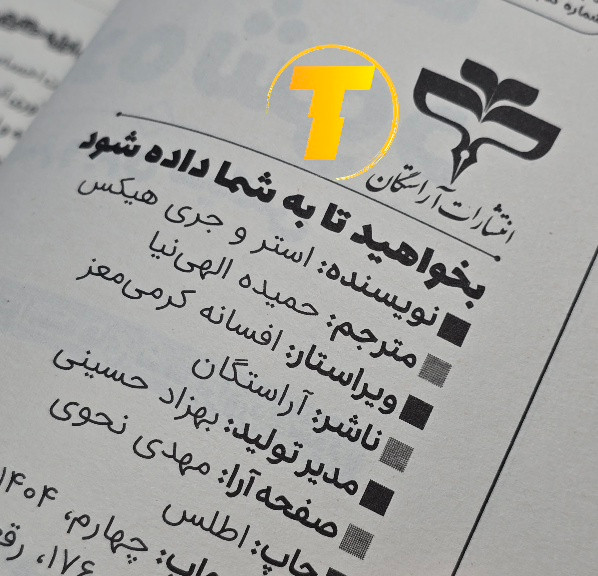 شماره
T
انتشارات آراستگان
بخواهید تا به شما داده شود
نویسنده: استر و جری هیکس
مترجم: حمیده الهی‌نیا
ویراستار: افسانه کرمی‌معز
ناشر: آراستگان
مدیر تولید: بهزاد حسینی
صفحه‌آرا: مهدی نحوی
چاپ: اطلس
چهارم، ۱۴۰۴
۱۷۶،